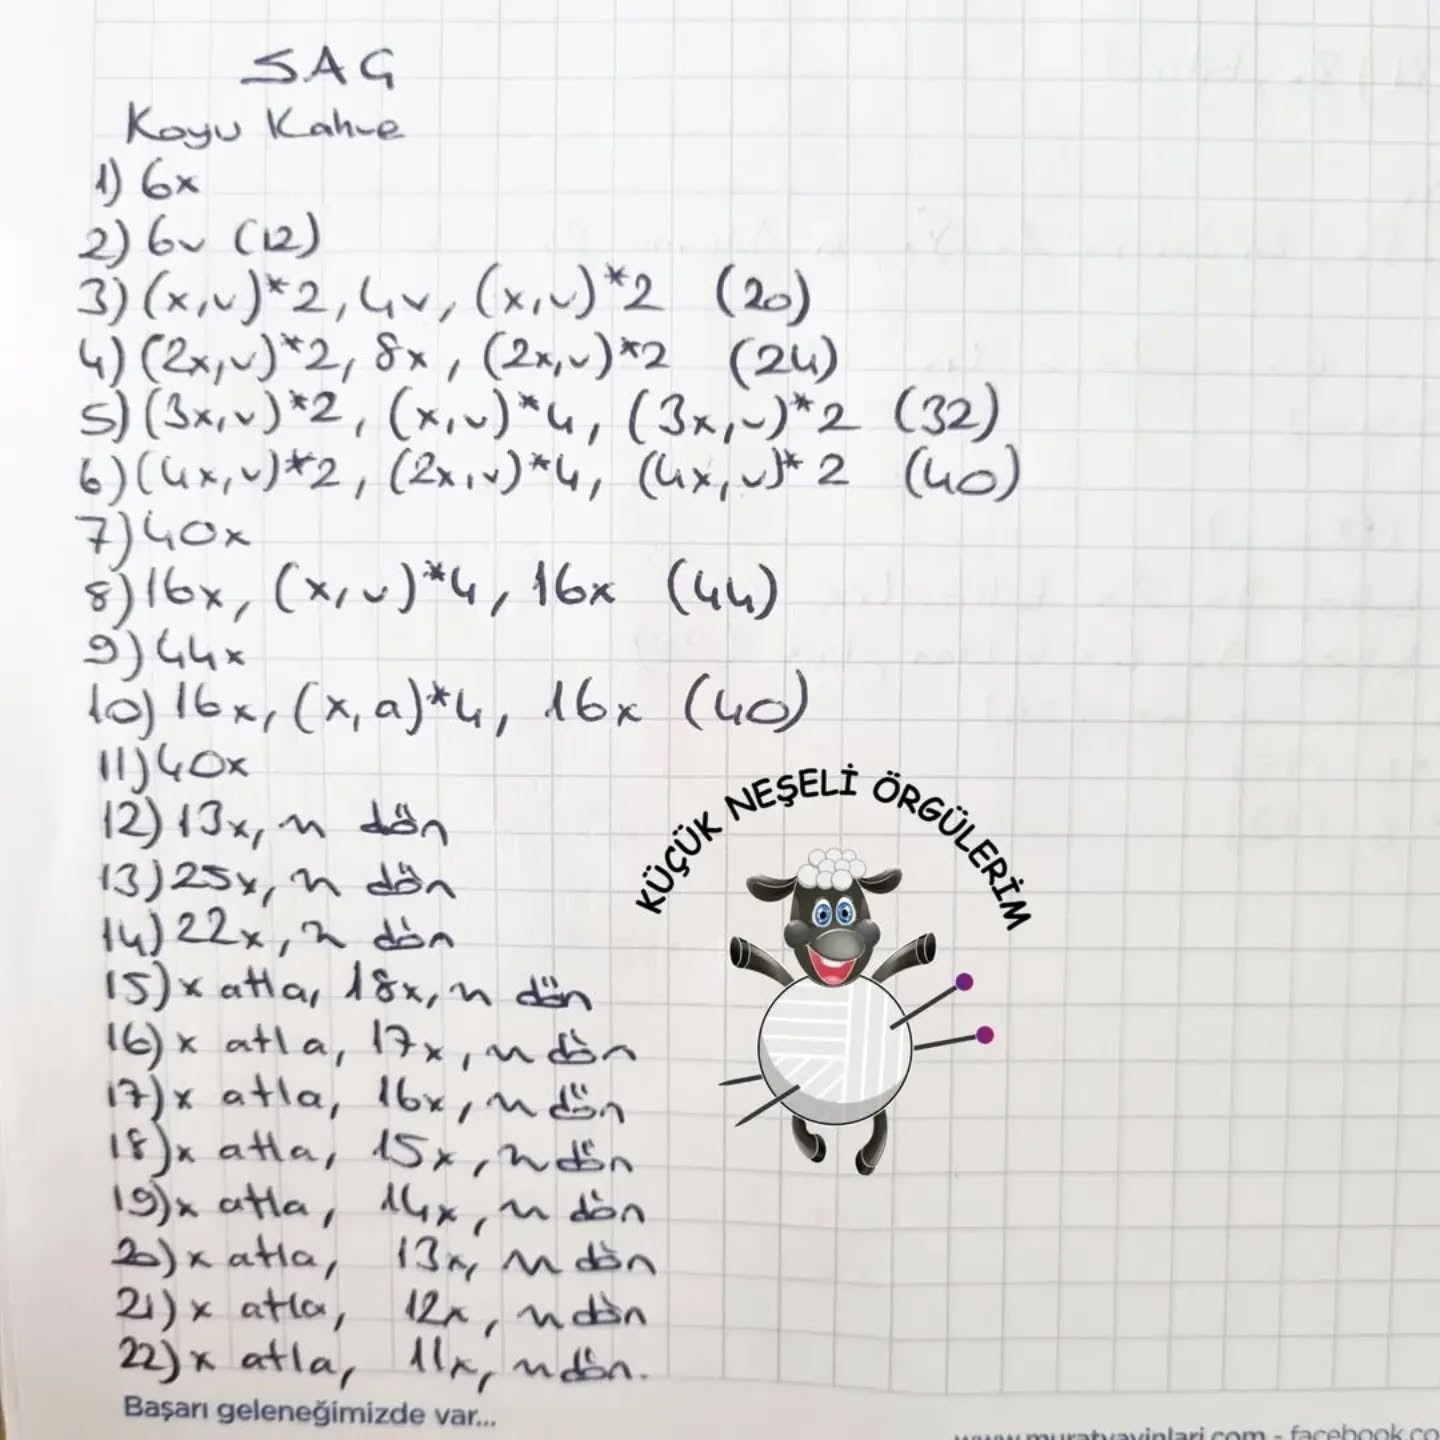 SAÇ
Koyu Kahve
1) 6x
2) 6v (12)
3) (x,v)*2, 4v, (x,v)*2 (20)
4) (2x,v)*2, 8x, (2x,v)*2 (24)
5) (3x,v)*2, (x,v)*4, (3x,v)*2 (32)
6) (4x,v)*2, (2x,v)*4, (4x,v)*2 (40)
7) 40x
8) 16x, (x,v)*4, 16x (44)
9) 44x
10) 16x, (x,a)*4, 16x (40)
11) 40x
12) 13x, n dön
13) 25x, n dön
14) 22x, n dön
15) x atla, 18x, n dön
16) x atla, 17x, n dön
17) x atla, 16x, n dön
18) x atla, 15x, n dön
19) x atla, 14x, n dön
20) x atla, 13x, n dön
21) x atla, 12x, n dön
22) x atla, 11x, n dön.
KÜÇÜK NEŞELİ ÖRGÜLERİM
Başarı geleneğimizde var...
www.muratyayinlari.com - facebook.co